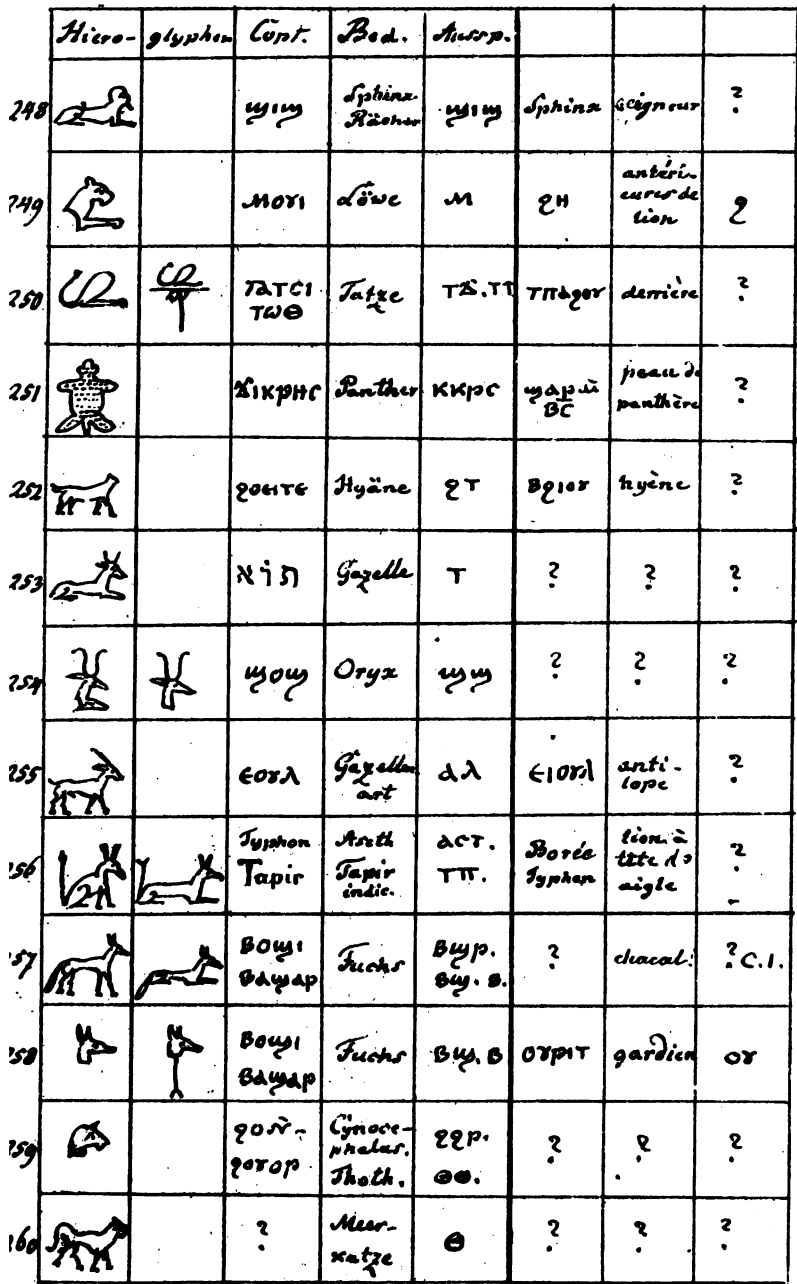 Hiero- glyphen Copt. Bed. Aussp.
248 ϣⲓϣ Sphinx Rächer ϣⲓϣ Sphinx seigneur ?
249 ⲙⲟⲩⲓ Löwe ⲙ ϩⲏ antéri- eures de lion ϩ
250 ⲧⲁⲧⲥⲓ ⲧⲱⲑ Tatze ⲧⲡⲁϩⲟⲩ derrière ?
251 Panther ⲕⲕⲣⲥ peau de panthère ?
252 ϩⲟⲉⲓⲧⲉ Hyäne ϩⲧ ⲃϩⲓⲟⲩ hyène ?
253 Gazelle ⲧ ? ? ?
254 ϣⲟϣ Oryx ϣϣ ? ? ?
255 ⲉⲟⲩⲗ Gazellen art ⲁⲗ ⲉⲓⲟⲩⲗ anti- lope ?
256 Typhon Tapir Tapir indic. ⲁⲥⲧ. ⲧⲡ. Borée Typhon lion à tête d' aigle ?
257 ⲃⲟϣⲓ ⲃⲁϣⲁⲣ Fuchs ⲃϣⲣ. ⲃϣ. ⲃ. ? chacal. ? C.I.
258 ⲃⲟϣⲓ ⲃⲁϣⲁⲣ Fuchs ⲃϣ. ⲃ ⲟⲩⲣⲓⲧ gardien ⲟⲩ
259 ϩⲟⲩⲟⲣ Cynoce- phalus. Thoth. ϩϩⲣ. ⲑⲑ. ? ? ?
260 ? Meer- katze ⲑ ? ? ?